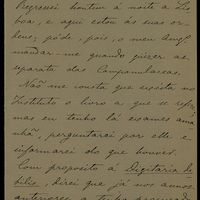 Regressei hontem á noite a Lis-
boa, e aqui estou ás suas or-
dens; póde, pois, o meu Amg.º
mandar-me quando quizer as
separata das Campanulaceas.
Não me consta que exista no
Instituto o livro a que se refere,
mas eu tenho lá exames ama-
nhã, perguntarei por elle e
informarei do que houver.
Com proposito á Digitaria de-
bilis, direi que já nos annos
anteriores a tenho